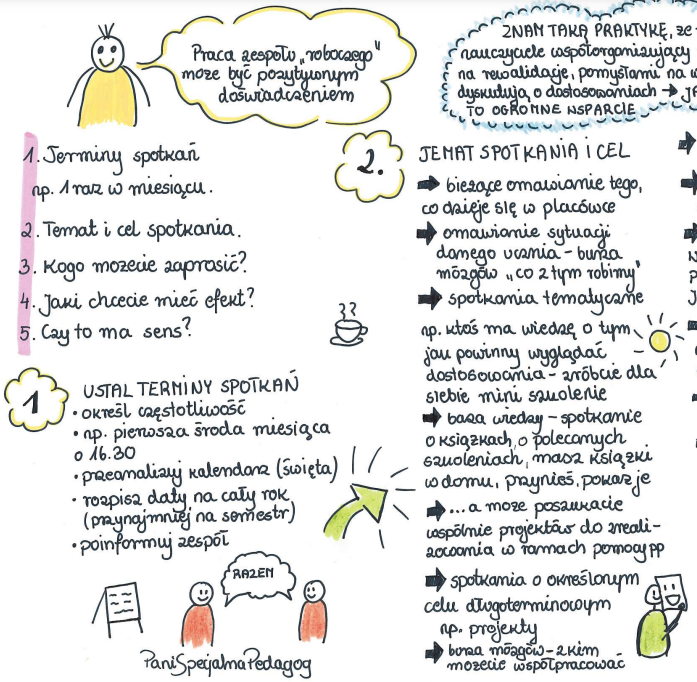 Praca zespołu „roboczego"
może być pozytywnym
doświadczeniem
ZNAM TAKĄ PRAKTYKĘ, że
nauczyciele współorganizujący
na rewalidację, pomysłami na
dyskutują o dostosowaniach →
TO OGROMNE WSPARCIE
1. Terminy spotkań
np. 1 raz w miesiącu.
2. Temat i cel spotkania.
3. Kogo możecie zaprosić?
4. Jaki chcecie mieć efekt?
5. Czy to ma sens?
1
USTAL TERMINY SPOTKAŃ
• określ częstotliwość
• np. pierwsza środa miesiąca
o 16.30
• przeanalizuj kalendarz (święta)
• rozpisz daty na cały rok
(przynajmniej na semestr)
• poinformuj zespół
RAZEM
PaniSpecjalnaPedagog
2.
TEMAT SPOTKANIA i CEL
➡ bieżące omawianie tego,
co dzieje się w placówce
➡ omawianie sytuacji
danego ucznia - burza
mózgów „co z tym robimy"
➡ spotkania tematyczne
np. ktoś ma wiedzę o tym
jak powinny wyglądać
dostosowania - zróbcie dla
siebie mini szkolenie
➡ baza wiedzy - spotkanie
o książkach, o polecanych
szkoleniach, masz książki
w domu, przynieś, pokaż je
➡ ... a może poszukacie
wspólnie projektów do zreali-
zowania w ramach pomocy pp
➡ spotkania o określonym
celu długoterminowym
np. projekty
➡ burza mózgów - z kim
możecie współpracować